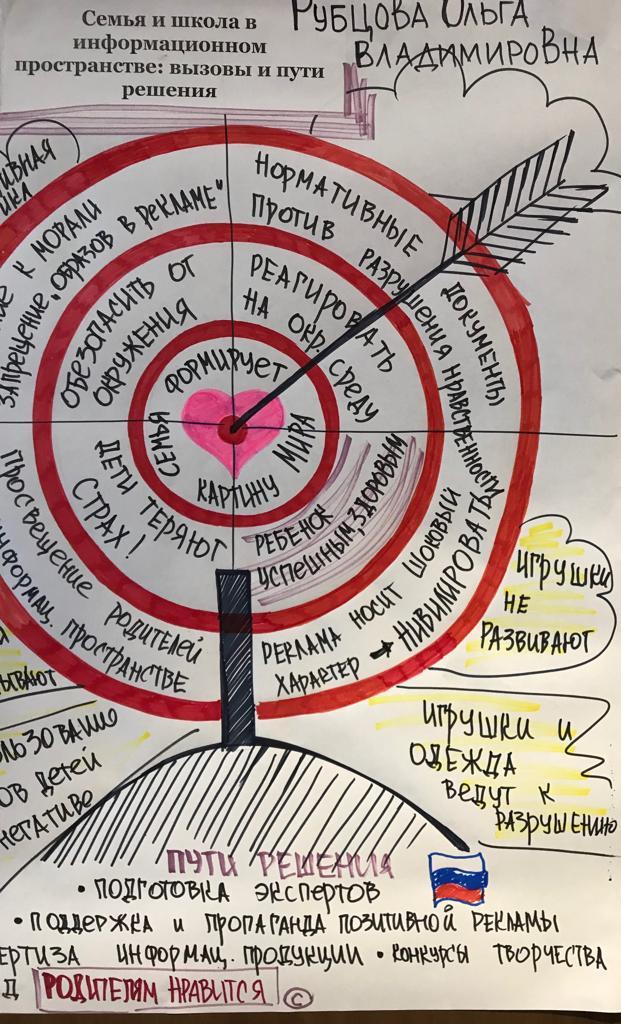 Семья и школа в
информационном
пространстве: вызовы и пути
решения
РУБЦОВА ОЛЬГА
ВЛАДИМИРОВНА
К МОРАЛИ
ЗАПРЕЩЕНИЕ "ОБРАЗОВ В РЕКЛАМЕ"
НОРМАТИВНЫЕ ДОКУМЕНТЫ
ПРОТИВ РАЗРУШЕНИЯ НРАВСТВЕННОСТИ
ОБЕЗОПАСИТЬ ОТ
ОКРУЖЕНИЯ
РЕАГИРОВАТЬ
НА ОКР. СРЕДУ
СЕМЬЯ ФОРМИРУЕТ
КАРТИНУ МИРА
ДЕТИ ТЕРЯЮТ
СТРАХ!
РЕБЕНОК
УСПЕШНЫМ, ЗДОРОВЫМ
ПРОСВЕЩЕНИЕ РОДИТЕЛЕЙ
ИНФОРМАЦ. ПРОСТРАНСТВЕ
РЕКЛАМА НОСИТ ШОКОВЫЙ
ХАРАКТЕР → НИВИЛИРОВАТЬ
ИГРУШКИ
НЕ
РАЗВИВАЮТ
ИГРУШКИ И
ОДЕЖДА
ВЕДУТ К
РАЗРУШЕНИЮ
ЛЬЗОВАНИЕ
ОВ ДЕТЕЙ
НЕГАТИВЕ
ПУТИ РЕШЕНИЯ
• ПОДГОТОВКА ЭКСПЕРТОВ
• ПОДДЕРЖКА И ПРОПАГАНДА ПОЗИТИВНОЙ РЕКЛАМЫ
ЕРТИЗА ИНФОРМАЦ. ПРОДУКЦИИ • КОНКУРСЫ ТВОРЧЕСТВА
Д РОДИТЕЛЯМ НРАВИТСЯ ©